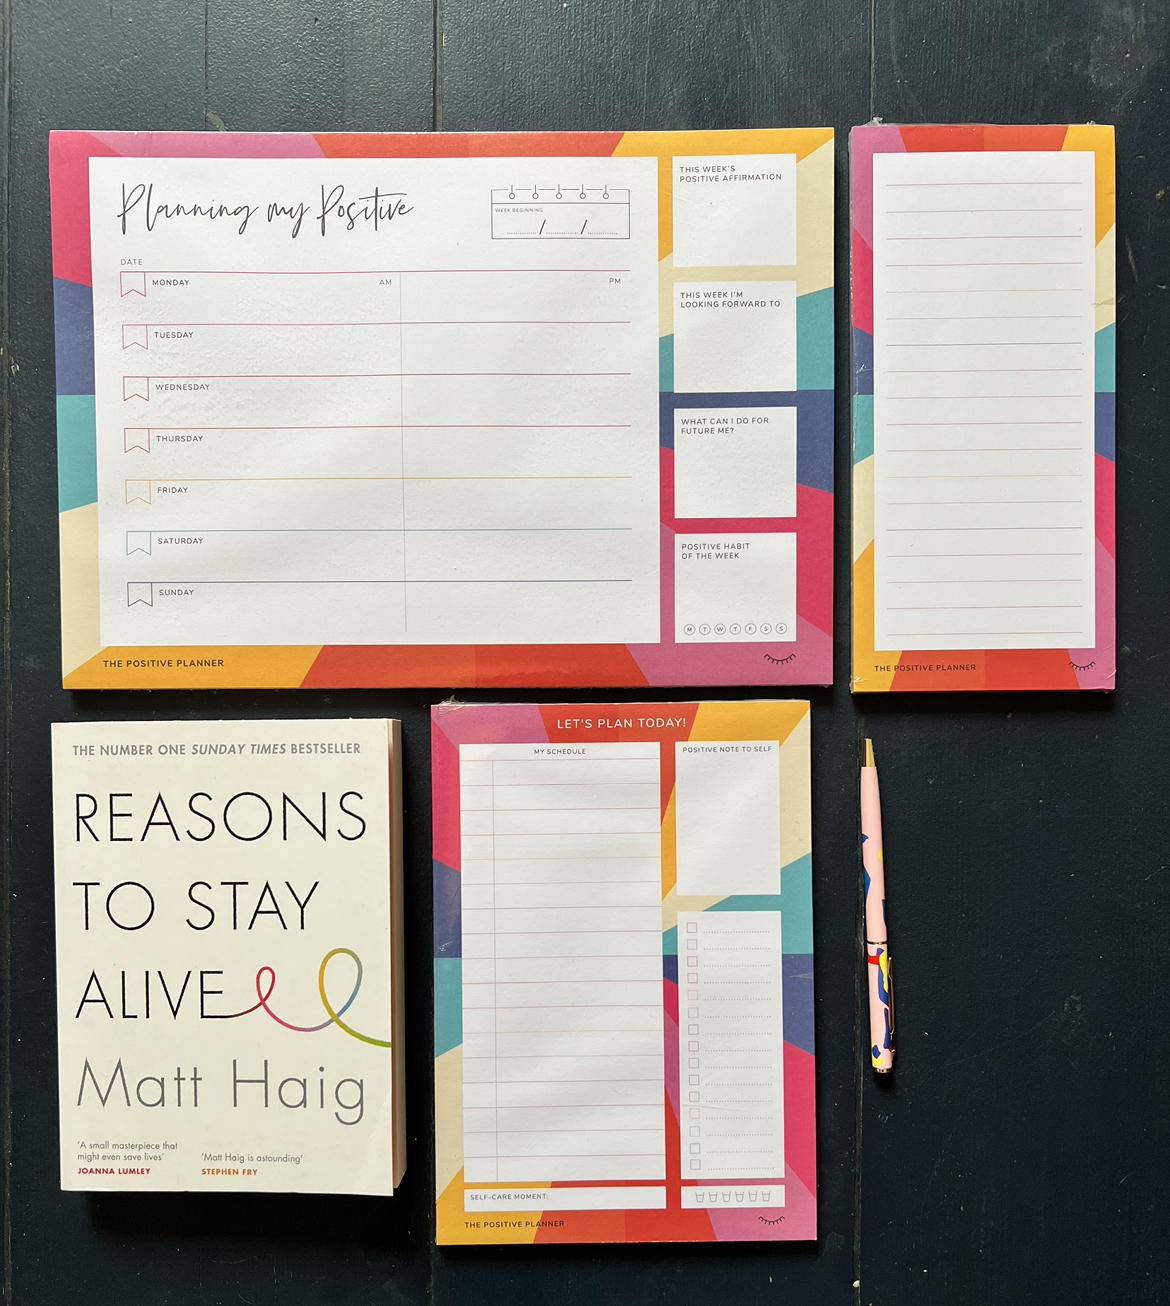 Planning my Positive
WEEK BEGINNING
/ /
DATE
MONDAY AM PM
TUESDAY
WEDNESDAY
THURSDAY
FRIDAY
SATURDAY
SUNDAY
THIS WEEK'S
POSITIVE AFFIRMATION
THIS WEEK I'M
LOOKING FORWARD TO
WHAT CAN I DO FOR
FUTURE ME?
POSITIVE HABIT
OF THE WEEK
M T W T F S S
THE POSITIVE PLANNER
THE POSITIVE PLANNER
THE NUMBER ONE SUNDAY TIMES BESTSELLER
REASONS
TO STAY
ALIVE
Matt Haig
'A small masterpiece that
might even save lives'
JOANNA LUMLEY
'Matt Haig is astounding'
STEPHEN FRY
LET'S PLAN TODAY!
MY SCHEDULE
POSITIVE NOTE TO SELF
SELF-CARE MOMENT:
THE POSITIVE PLANNER